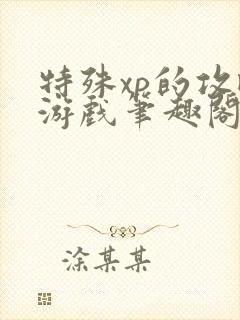 特殊xp的攻
游戏笔趣阁
涂某某